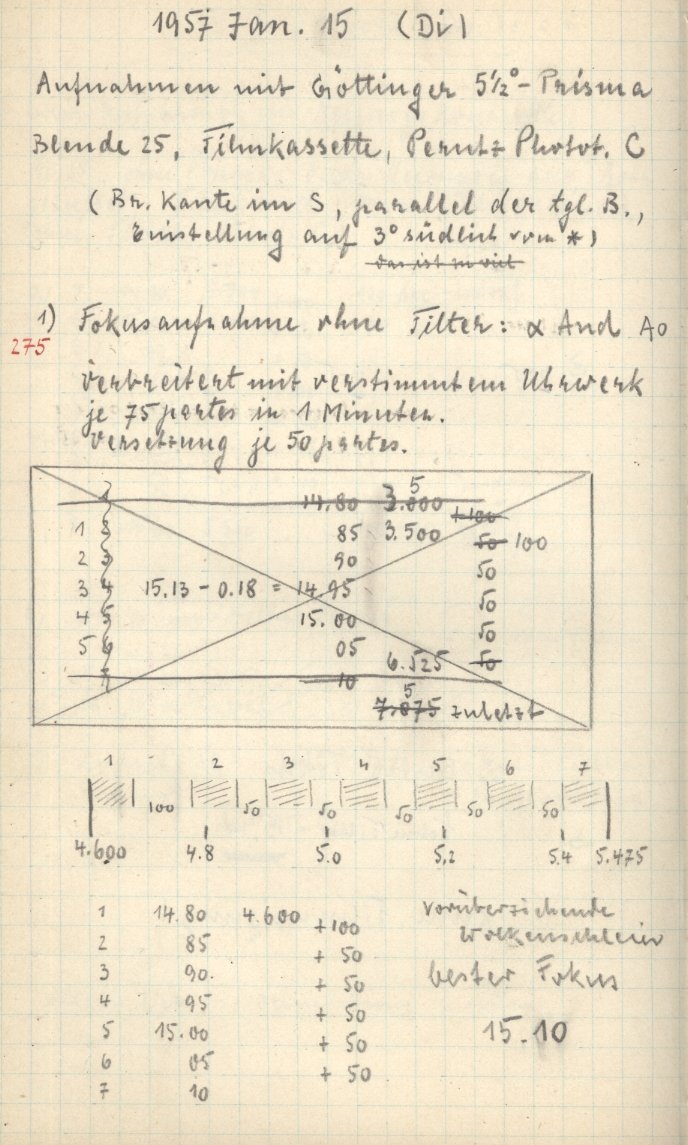 1957 Jan. 15 (Di)
Aufnahmen mit Göttinger 5½°-Prisma
Blende 25, Filmkassette, Perutz Phototh. C
(Br. Kante im S, parallel der tgl. B.,
Einstellung auf 3° südlich vom *)
das ist zu viel
1) Fokusaufnahme ohne Filter: α And A0
275
verbreitert mit verstimmtem Uhrwerk
je 75 partes in 1 Minuten.
Versetzung je 50 partes.
1 14.80 3.000 5 +100
1 2 85 3.500 50 100
2 3 90 50
3 4 15.13 - 0.18 = 14.95 50
4 5 15.00 50
5 6 05 6.525 50
7 10 5
7.875 zuletzt
1 2 3 4 5 6 7
100 50 50 50 50 50
4.600 4.8 5.0 5.2 5.4 5.475
1 14.80 4.600 +100 vorüberziehende
2 85 + 50 Wolkenschleier
3 90. + 50 bester Fokus
4 95 + 50
5 15.00 + 50 15.10
6 05 + 50
7 10